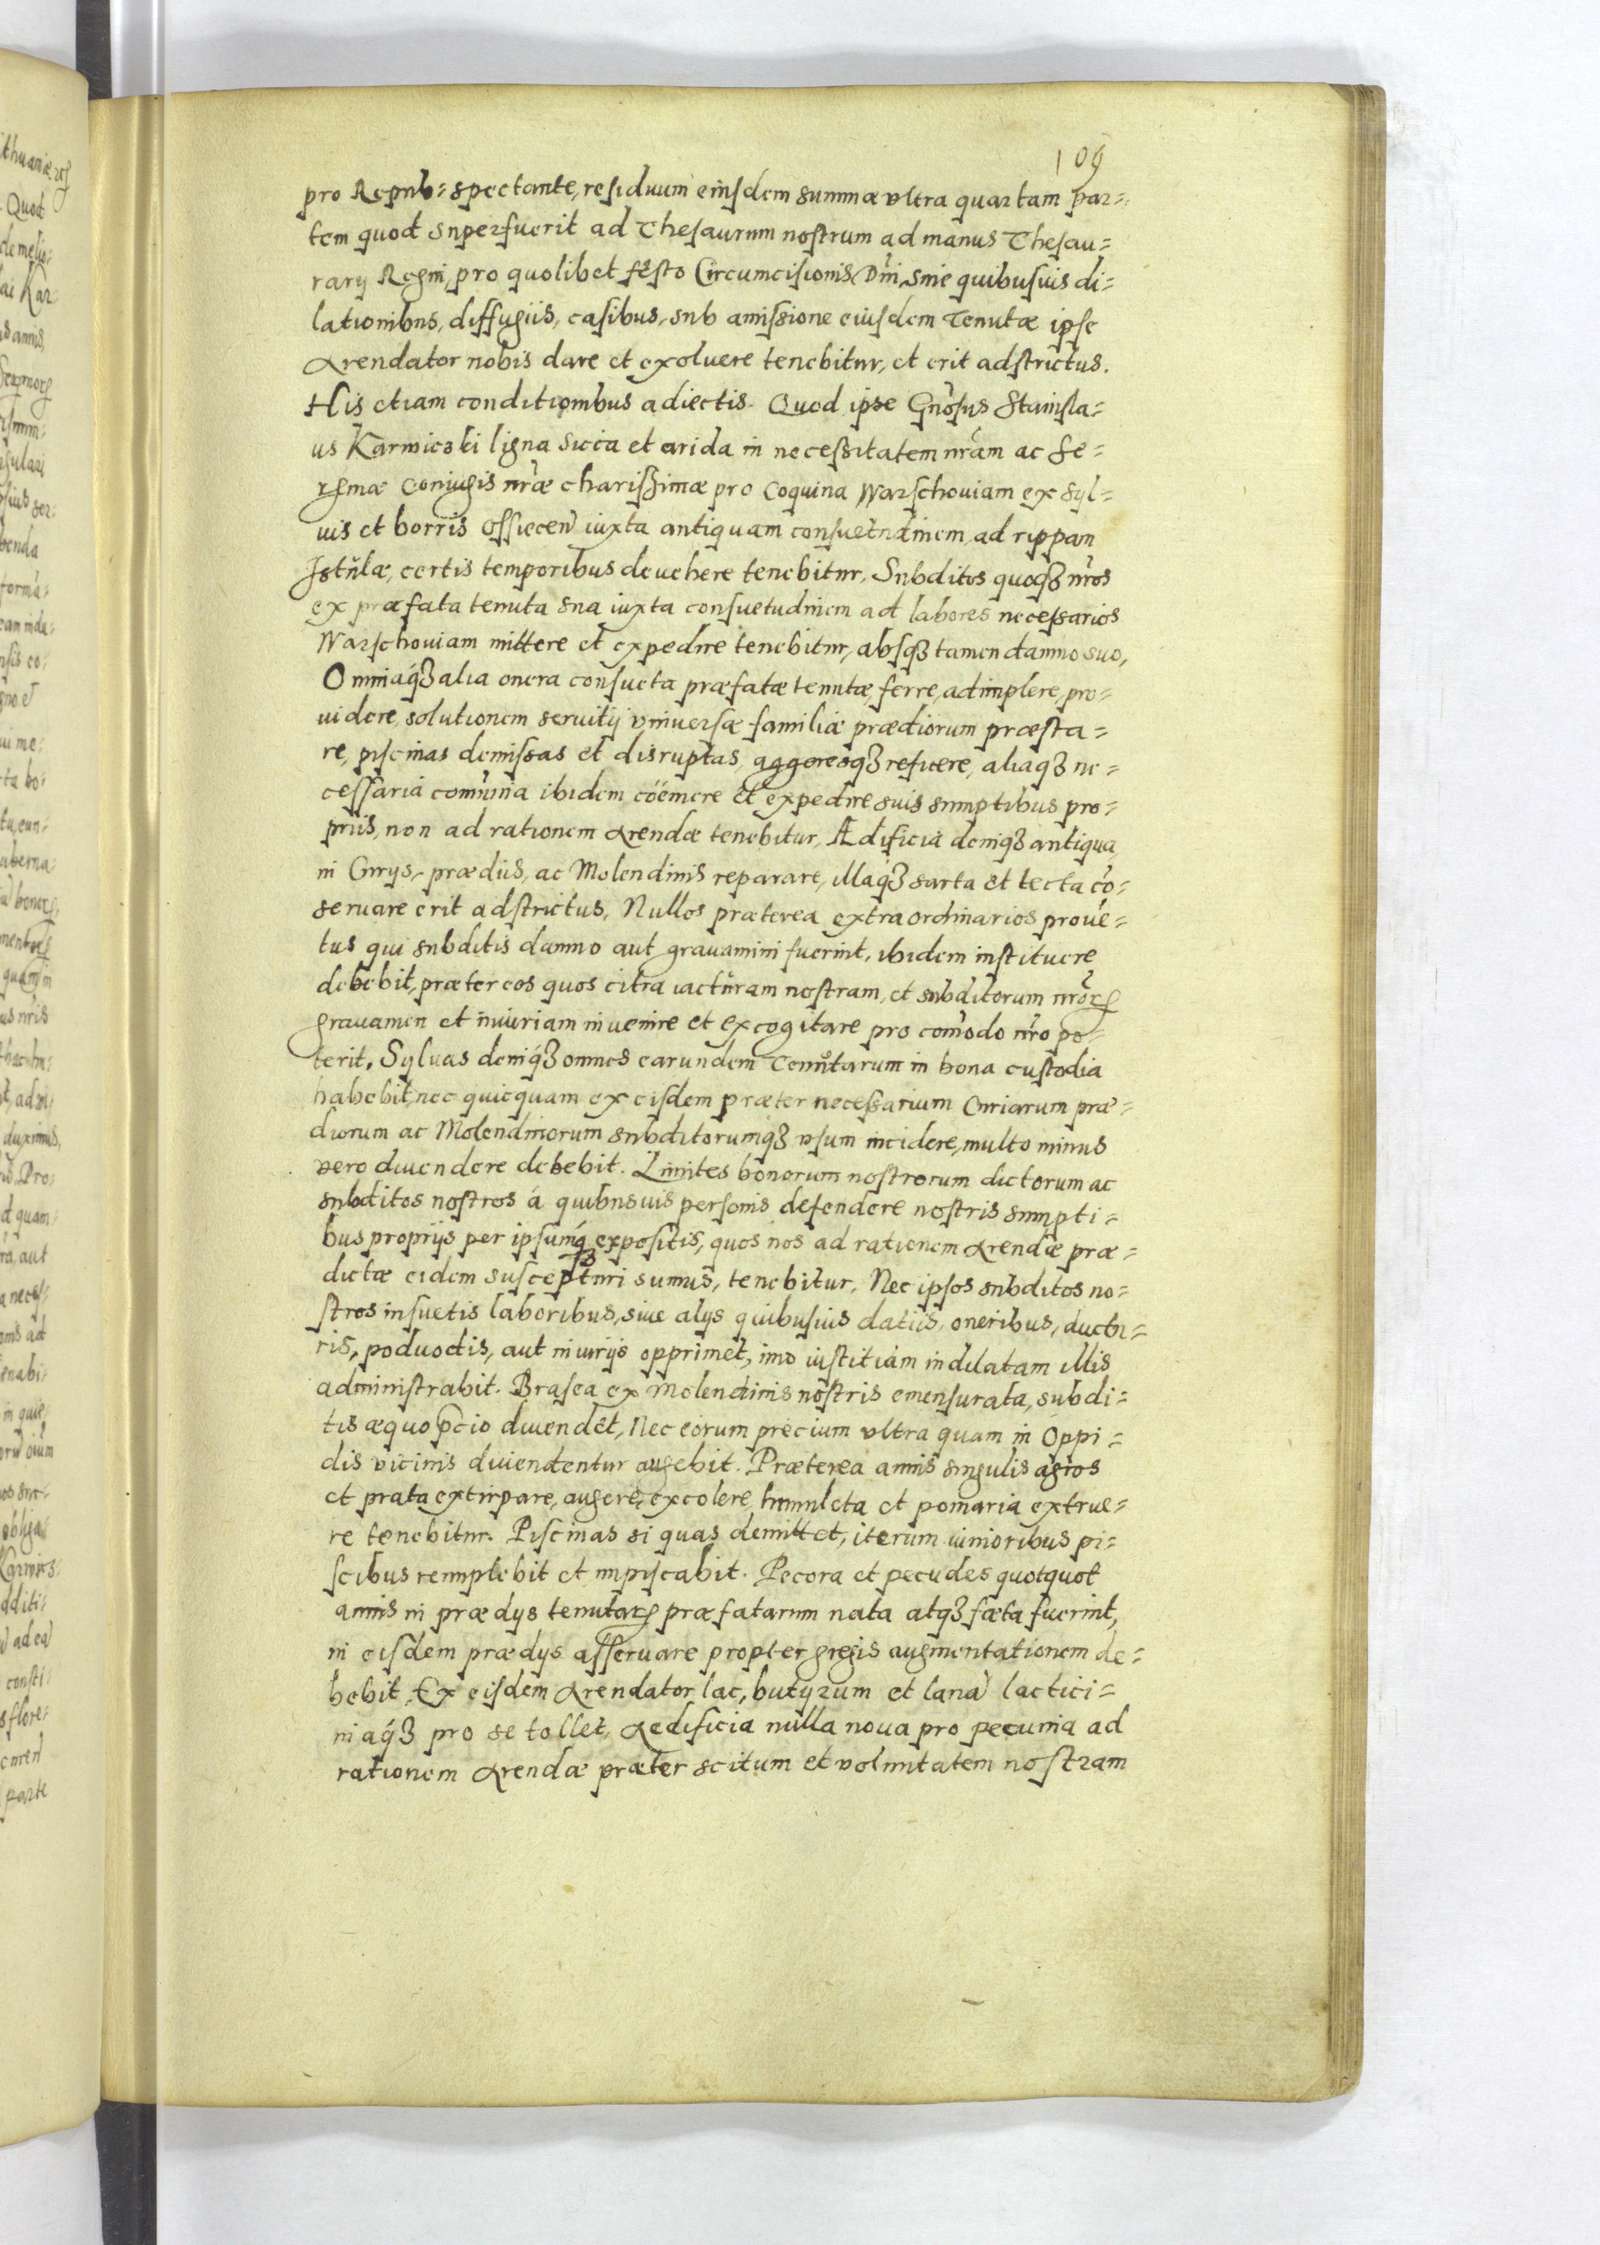 109
pro Repub= spectante, residuum eiusdem summæ vltra quartam par=
tem quod superfuerit ad Thesaurum nostrum ad manus Thesau=
rarij Regni, pro quolibet festo Circumcisionis Dni, sine quibusuis di=
lationibus, diffugiis, casibus, sub amissione eiusdem Tenutæ ipse
Arendator nobis dare et exoluere tenebitur, et erit adstrictus.
His etiam conditionibus adiectis. Quod ipse Gnosus Stanisla=
us Karnicoski ligna sicca et arida in necessitatem nram ac Se=
rgmæ Coniugis nræ charissimæ pro Coquina Warschouiam ex syl=
uis et borris Ossiecen iuxta antiquam consuetudinem, ad rippam
Istulæ, certis temporibus deuehere tenebitur, Subditos quoqȝ nros
ex præfata tenuta sua iuxta consuetudinem ad labores necessarios
Warschouiam mittere et expedire tenebitur, absqȝ tamen damno suo,
Omniaqȝ alia onera consueta præfatæ tenutæ, ferre, adimplere, pro=
uidere, solutionem seruitij vniuersæ familiæ prædiorum præsta=
re, piscinas demissas et disruptas, aggeresqȝ reficere, aliaqȝ ne=
cessaria comunia ibidem cöémere et expedire suis sumptibus pro=
priis, non ad rationem Arendæ tenebitur, Ædificia deniqȝ antiqua
in Curys, prædiis, ac Molendinis reparare, illaqȝ sarta et tecta co=
seruare erit adstrictus, Nullos præterea extraordinarios proue=
tus qui subditis damno aut grauamini fuerint, ibidem instituere
debebit, præter eos quos citra iacturam nostram, et subditorum nrorꝝ
grauamen et iniuriam inuenire et excogitare pro comodo nro po=
terit, Syluas deniqȝ omnes earundem Tenutarum in bona custodia
habebit, nec quicquam ex eisdem præter necessarium Curiarum præ=
diorum ac Molendinorum subditorumqȝ vsum incidere, multo minus
vero diuendere debebit. Limites bonorum nostrorum dictorum ac
subditos nostros á quibusuis personis defendere nostris sumpti=
bus proprijs per ipsumqȝ expositis, quos nos ad rationem Arendæ præ=
dictæ eidem suscepturi sumus, tenebitur, Nec ipsos subditos no=
stros insuetis laboribus, siue alys quibusuis datiis, oneribus, ductu=
ris, poduodis, aut iniurijs opprimet, imo iustitiam indilatam illis
administrabit. Brasea ex Molendinis nostris emensurata, subdi=
tis æquo pcio diuendet, Nec eorum precium vltra quam in Oppi=
dis vicinis diuendentur augebit. Præterea annis singulis agros
et prata extirpare, augere, excolere, humuleta et pomaria extrue=
re tenebitur. Piscinas si quas demittet, iterum iunioribus pi=
scibus reimplebit et impiscabit. Pecora et pecudes quotquot
annis in prædys tenutarꝝ præfatarum nata atqȝ fæta fuerint,
in eisdem prædys asseruare propter gregis augmentationem de=
bebit, Ex eisdem Arendator lac, butyrum et lana lactici=
niaqȝ pro se tollet, Aedificia nulla noua pro pecunia ad
rationem Arendæ præter scitum et voluntatem nostram